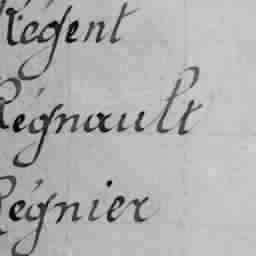 Régent
Régnault
Régnier